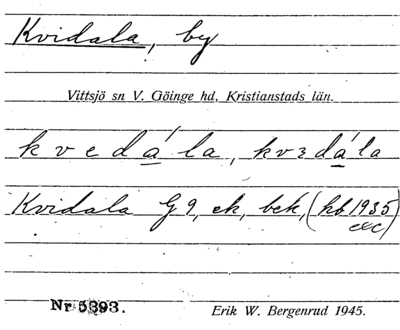 Kvidala, by
Vittsjö sn V. Göinge hd, Kristianstads län.
kvedála, kvɜdála
Kvidala G 9, ek, bek, (kb 1935)
Nr 5393.
Erik W. Bergenrud 1945.